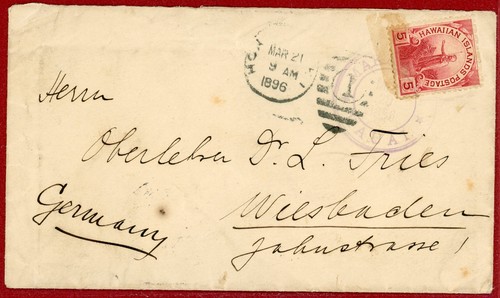 HAWAIIAN ISLANDS POSTAGE
5 5
MAR 21
9 AM
1896
1
Herrn
Oberlehrer Dr. L. Fries
Wiesbaden
Germany
Jahnstrasse 1